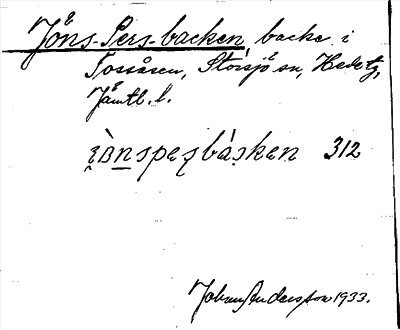 Jöns-Pers-backen, backe i
Tossåsen, Storsjö sn, Hede tg,
Jämtl. l.
312
Johan Andersson 1933.